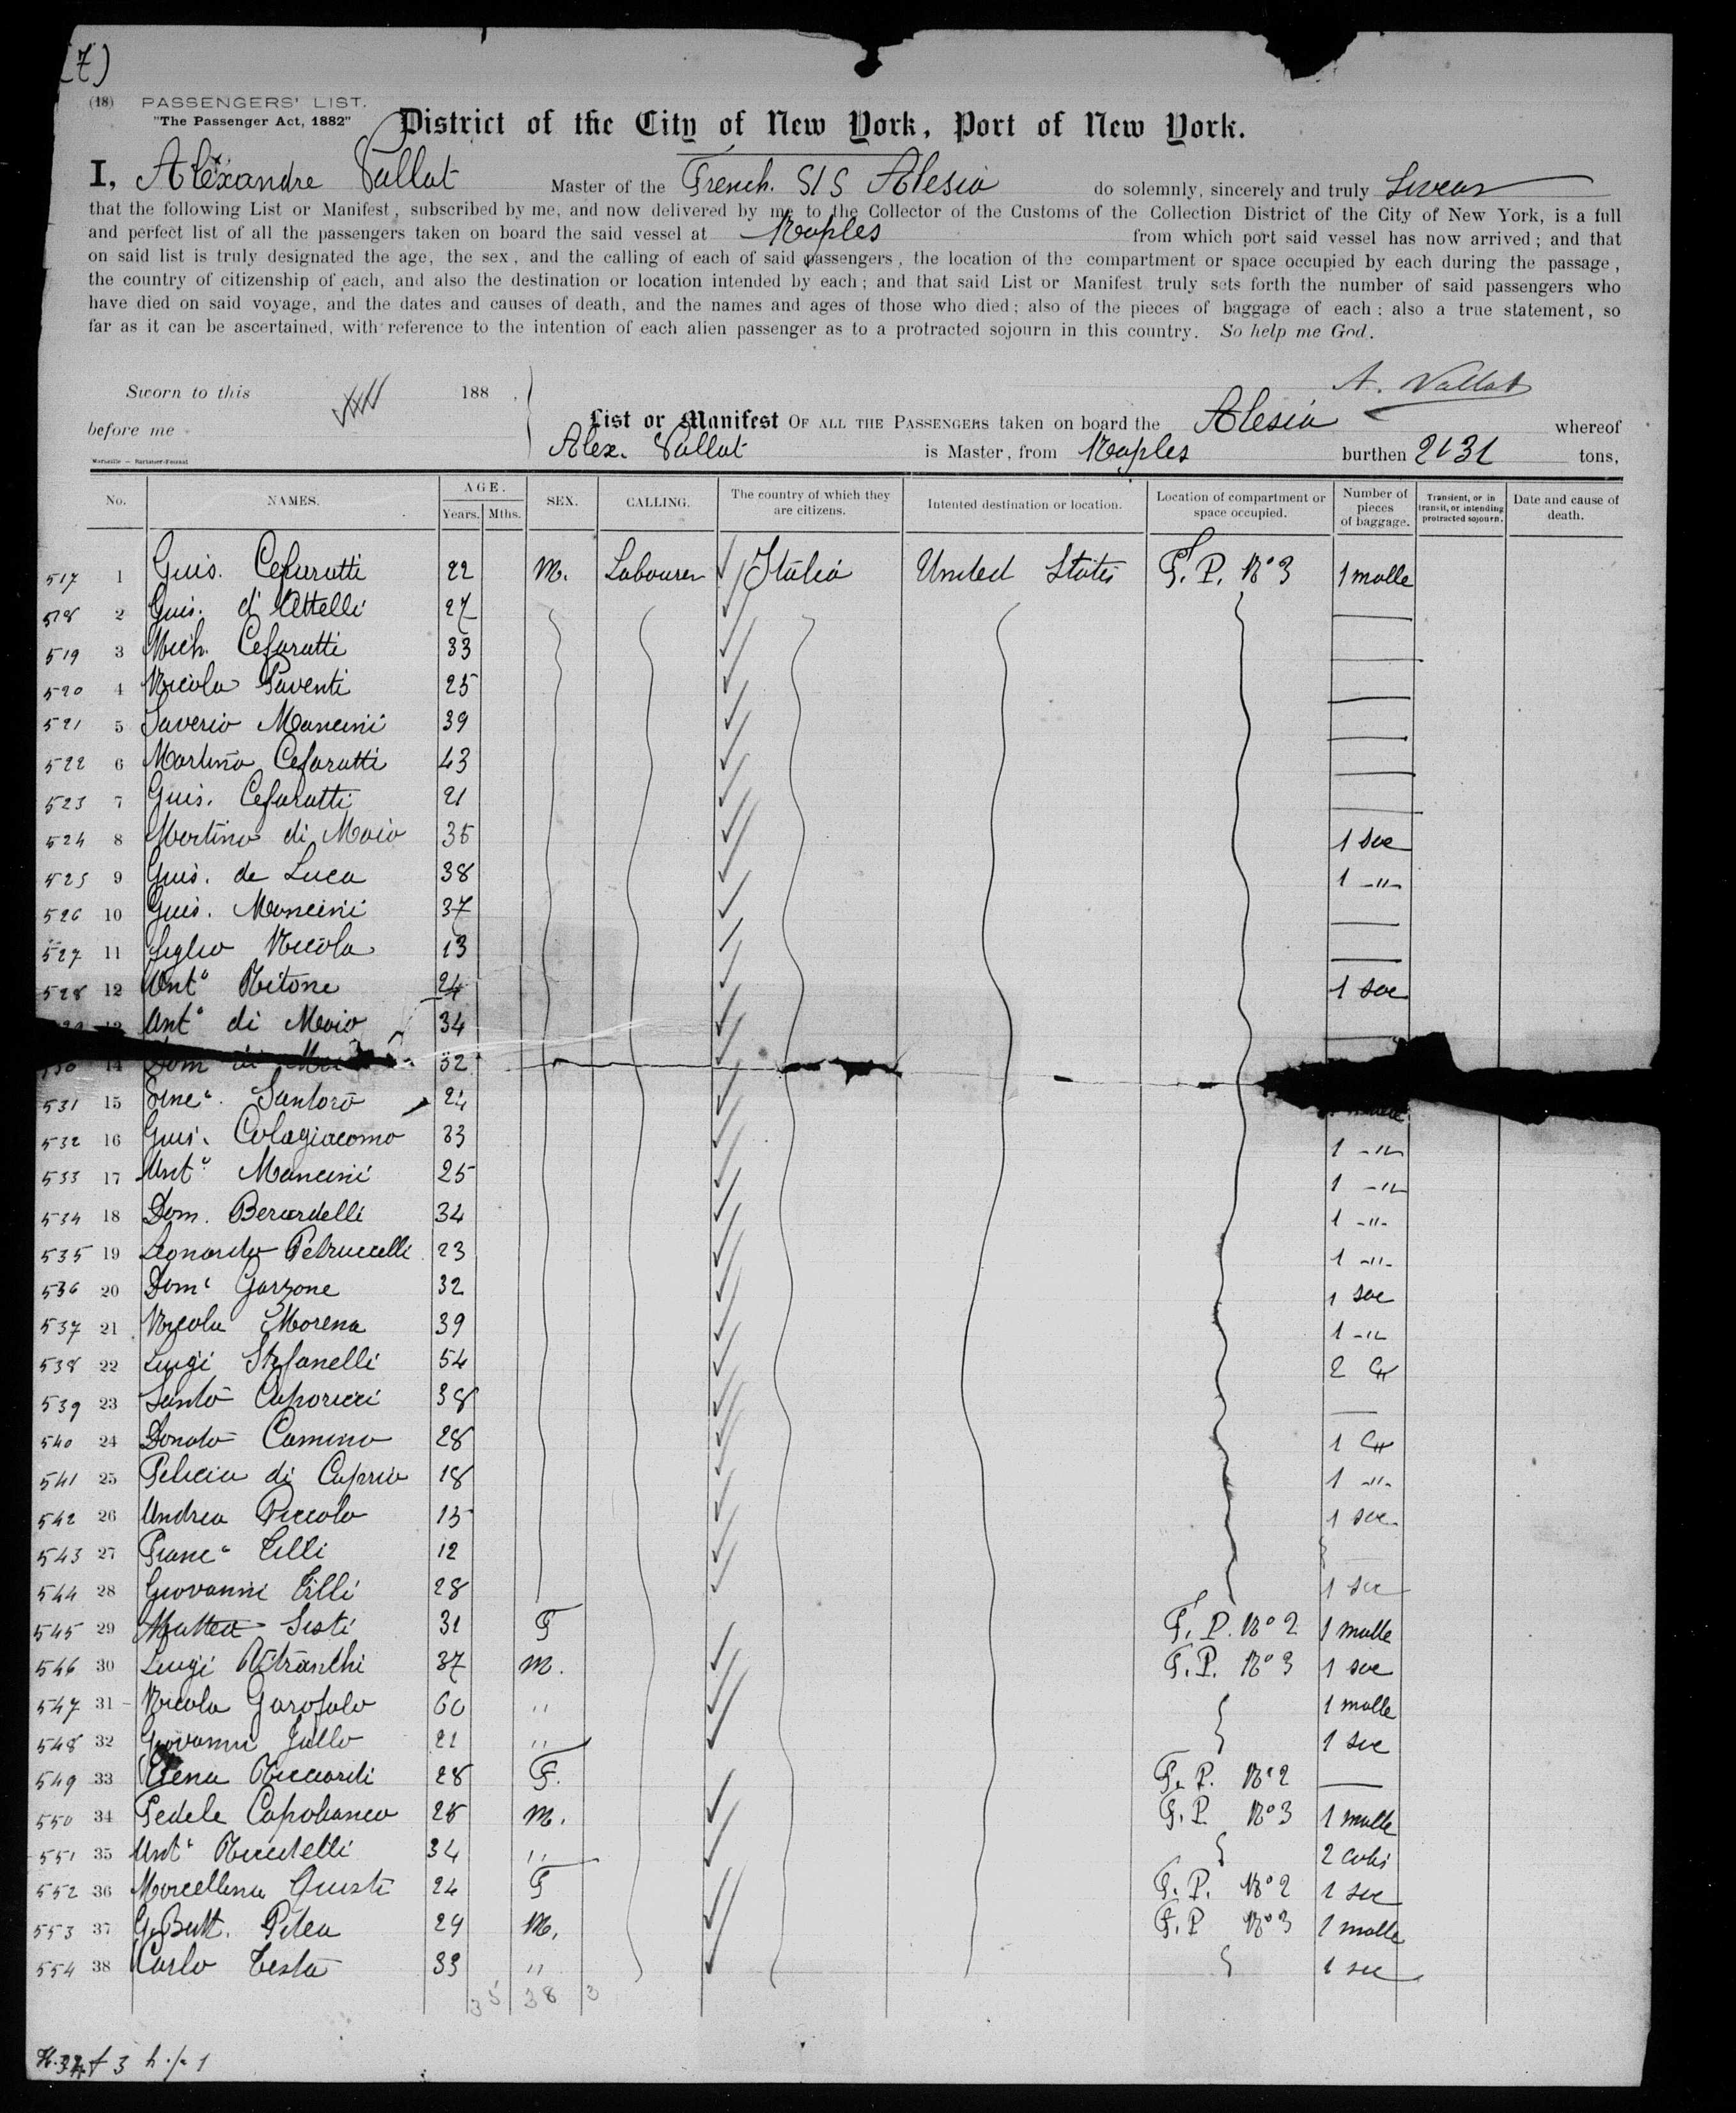 (7)
(18) PASSENGERS' LIST.
"The Passenger Act, 1882"
District of the City of New York, Port of New York.
I, Alexandre Vallat Master of the French. S/S Alesia do solemnly, sincerely and truly Swear
that the following List or Manifest, subscribed by me, and now delivered by me to the Collector of the Customs of the Collection District of the City of New York, is a full
and perfect list of all the passengers taken on board the said vessel at Naples from which port said vessel has now arrived; and that
on said list is truly designated the age, the sex, and the calling of each of said passengers, the location of the compartment or space occupied by each during the passage,
the country of citizenship of each, and also the destination or location intended by each; and that said List or Manifest truly sets forth the number of said passengers who
have died on said voyage, and the dates and causes of death, and the names and ages of those who died; also of the pieces of baggage of each: also a true statement, so
far as it can be ascertained, with reference to the intention of each alien passenger as to a protracted sojourn in this country. So help me God.
A. Vallat
Sworn to this 188
before me
List or Manifest OF ALL THE PASSENGERS taken on board the Alesia whereof
Alex. Vallat is Master, from Naples burthen tons,
Marseille — Barlatier-Feissat
No. NAMES. AGE. Years. Mths. SEX. CALLING. The country of which they are citizens. Intented destination or location. Location of compartment or space occupied. Number of pieces of baggage. Transient, or in transit, or intending protracted sojourn. Date and cause of death.
517 1 Guis. Cefaratti 22 M. Labourer Italia United States F. P. No 3 1 malle
518 2 Guis. d'Attelli 27
519 3 Mich. Cefaratti 33
520 4 Nicola Paventi 25
521 5 Saverio Mancini 39
522 6 Martino Cefaratti 43
523 7 Guis. Cefaratti 21
524 8 Martino di Maio 35 1 sac
525 9 Guis. de Luca 38 1 -"-
526 10 Guis. Mancini 37
527 11 figlio Nicola 13
528 12 Anto Ritone 24 1 sac
13 Anto di Maio 34
530 14 Dom di 32
531 15 Santoro 24
532 16 Guis. Colagiacomo 33 1 -"-
533 17 Anto Mancini 25 1 -"-
534 18 Dom. Berardelli 34 1 -"-
535 19 Leonardo Petruccelli 23 1 -"-
536 20 Domo Garzone 32 1 sac
537 21 Nicola Morena 39 1 -"-
538 22 Luigi Stefanelli 54 2
539 23 Santo Caporicci 38
540 24 Donato Camino 28 1
541 25 Felicia di Caprio 18 1 -"-
542 26 Andrea Piccolo 15 1 sac
543 27 Franco Tilli 12
544 28 Giovanni Tilli 28 1 sac
545 29 Mattea Sisti 31 F F. P. No 2 1 malle
546 30 Luigi 37 M. F. P. No 3 1 sac
547 31 Nicola Garofalo 60 " 1 malle
548 32 Giovanni Jullo 21 " 1 sac
549 33 Elena Ricciardi 28 F. F. P. No 2
550 34 Fedele Capobianco 28 M. F. P. No 3 1 malle
551 35 Anto Ricciitelli 34 " 2 colis
552 36 Marcellina Giusti 24 F F. P. No 2 1 sac
553 37 G. Batt. Pitea 29 M. F. P No 3 1 malle
554 38 Carlo Testa 33 " 1 sac
38 3